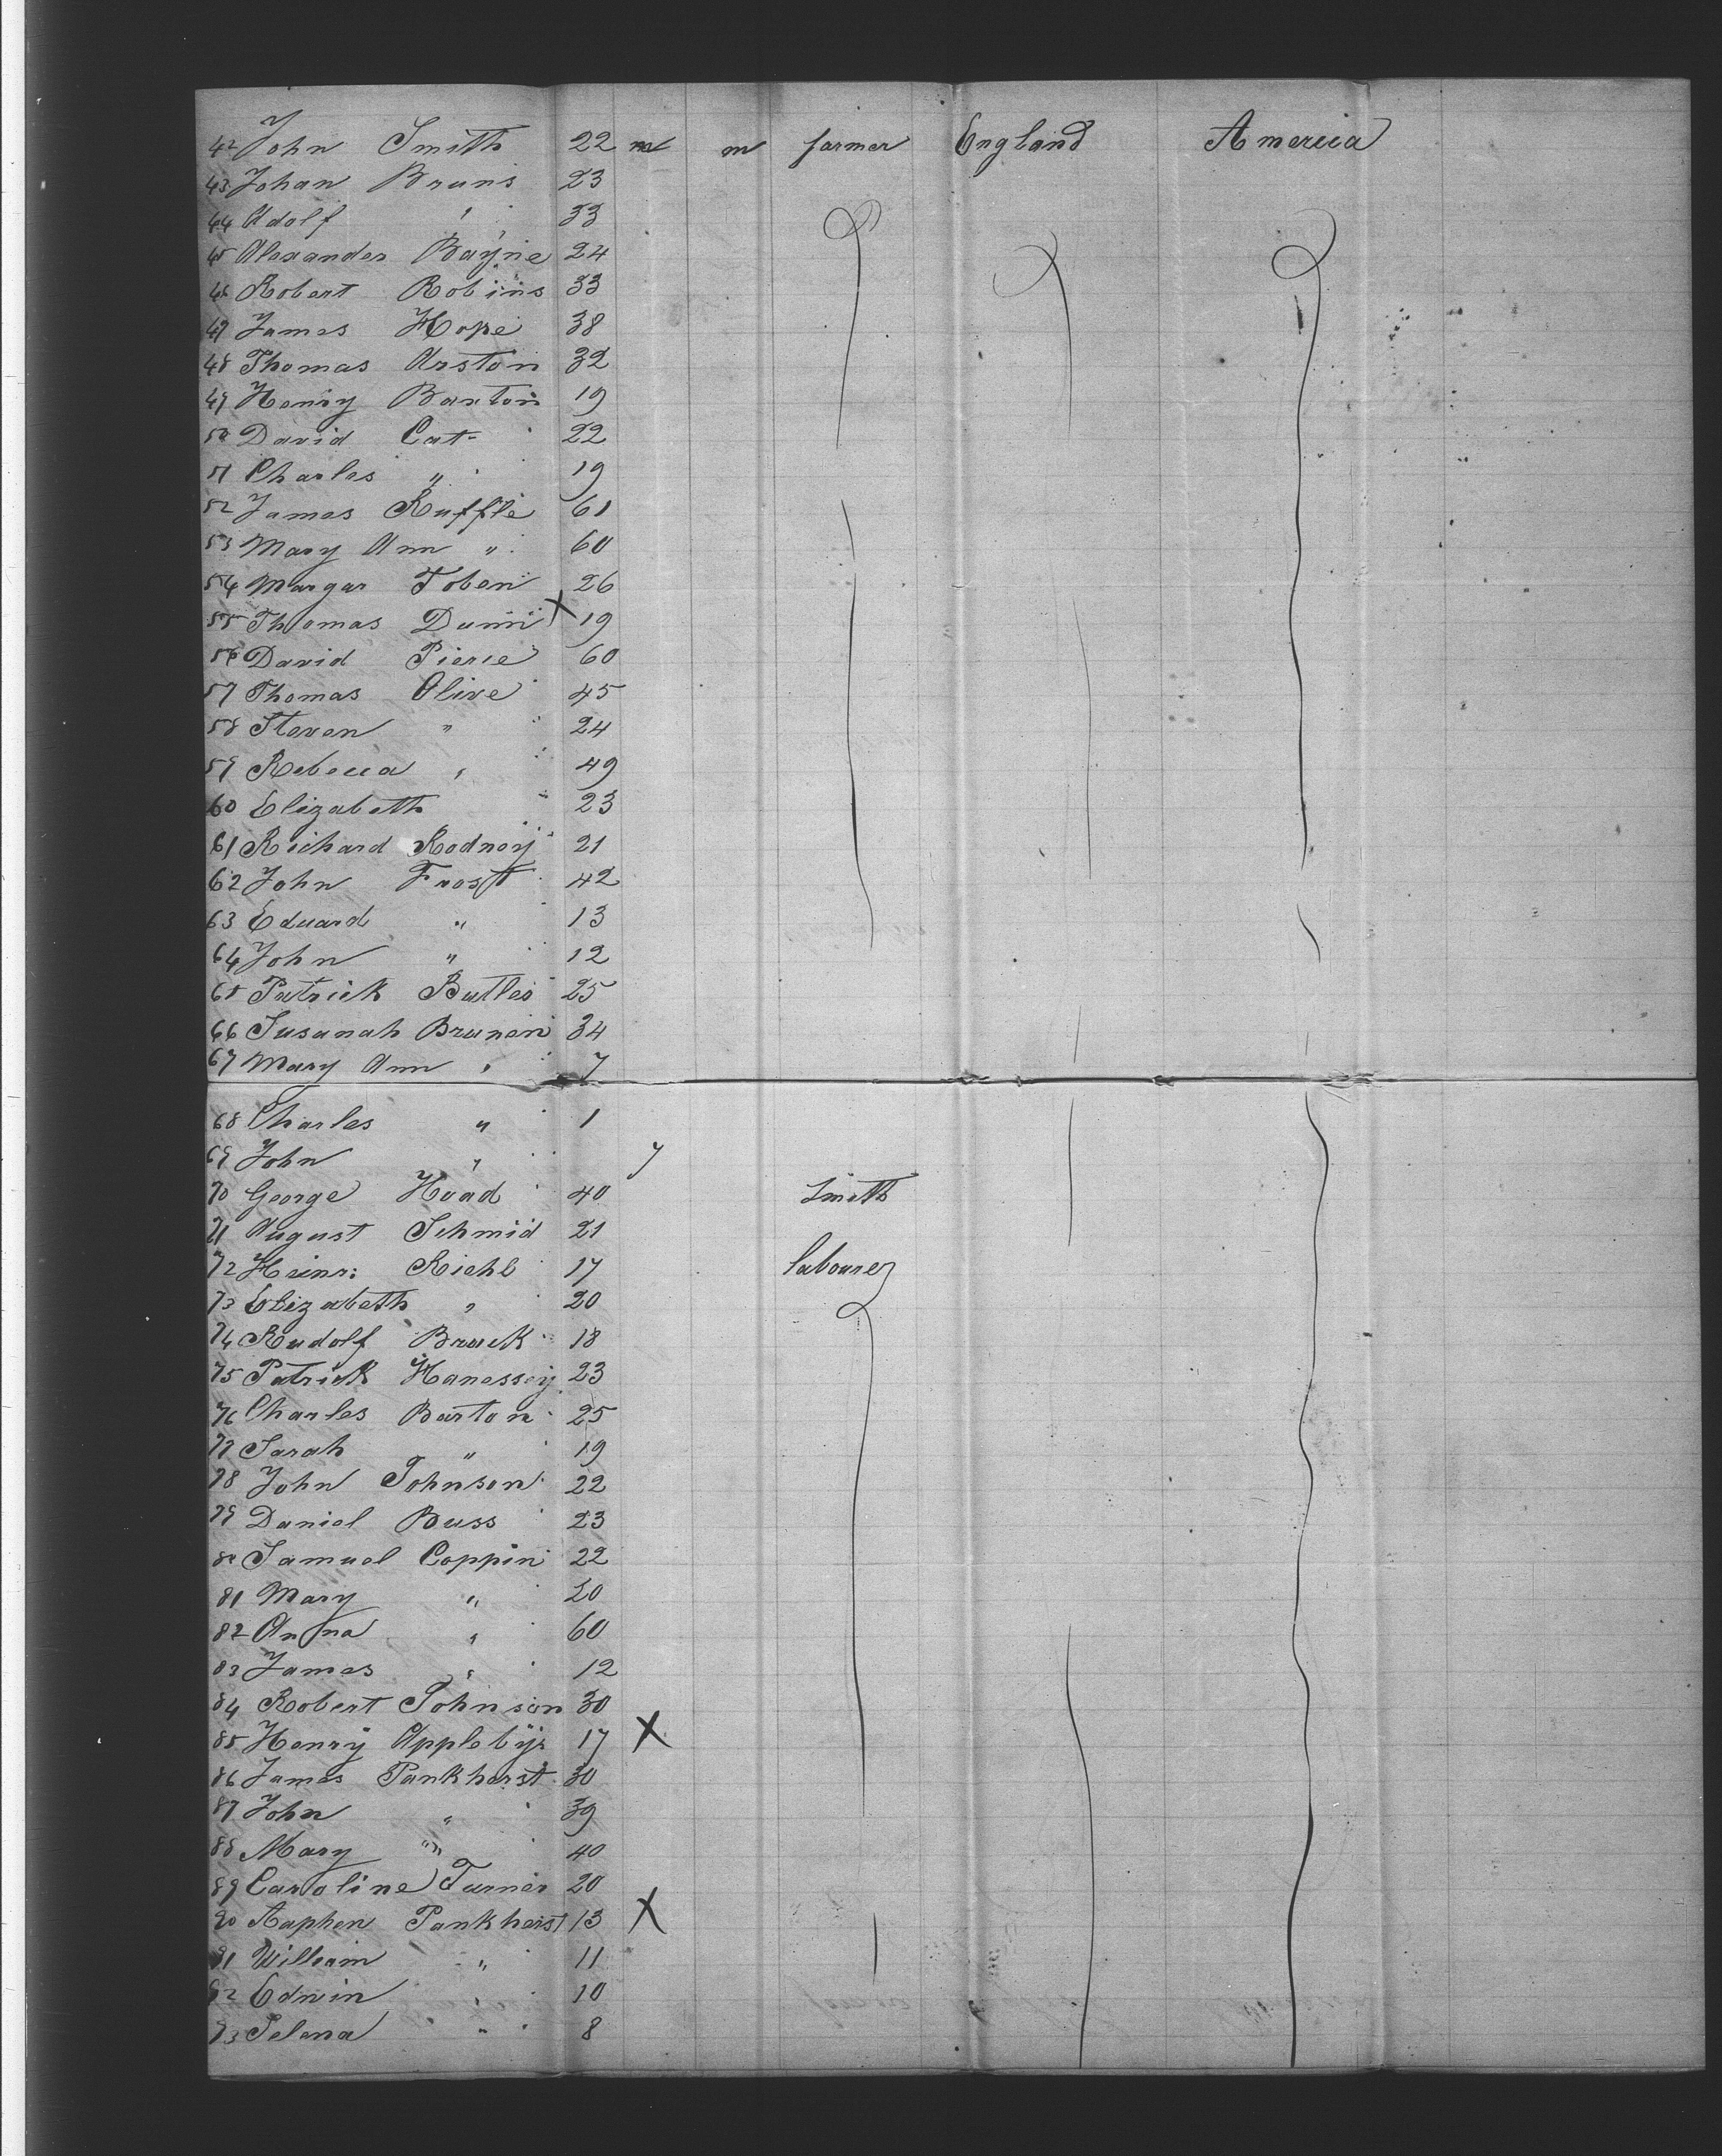 42 John Smith 22 m m farmer England America
43 Johan Bruns 23
44 Adolf " 33
45 Alexander Bayne 24
46 Robert Robins 33
47 James Hope 38
48 Thomas Arston 32
49 Henry Barton 19
50 David Cat 22
51 Charles " 19
52 James Ruffle 61
53 Mary Ann " 60
54 Margar Toben 26
55 Thomas Dunn X 19
56 David Pierce 60
57 Thomas Olive 45
58 Steven " 24
59 Rebecca " 49
60 Elizabeth " 23
61 Richard Rodney 21
62 John Frost 42
63 Eduard " 13
64 John " 12
65 Patrick Butler 25
66 Susanah Brunen 34
67 Mary Ann " 7
68 Charles " 1
69 John " 7
70 George Hoad 40 Smith
71 August Schmid 21
72 Heinr: Riehl 17 labourer
73 Elizabeth " 20
74 Rudolf Brack 18
75 Patrick Hanessey 23
76 Charles Barton 25
77 Sarah " 19
78 John Johnson 22
79 Daniel Buss 23
80 Samuel Coppin 22
81 Mary " 20
82 Anna " 60
83 James " 12
84 Robert Johnson 30
85 Henry Applebys 17 X
86 James Pankherst 30
87 John " 39
88 Mary " 40
89 Caroline Turner 20
90 Pankherst 13 X
91 William " 11
92 Edwin " 10
93 Selena " 8